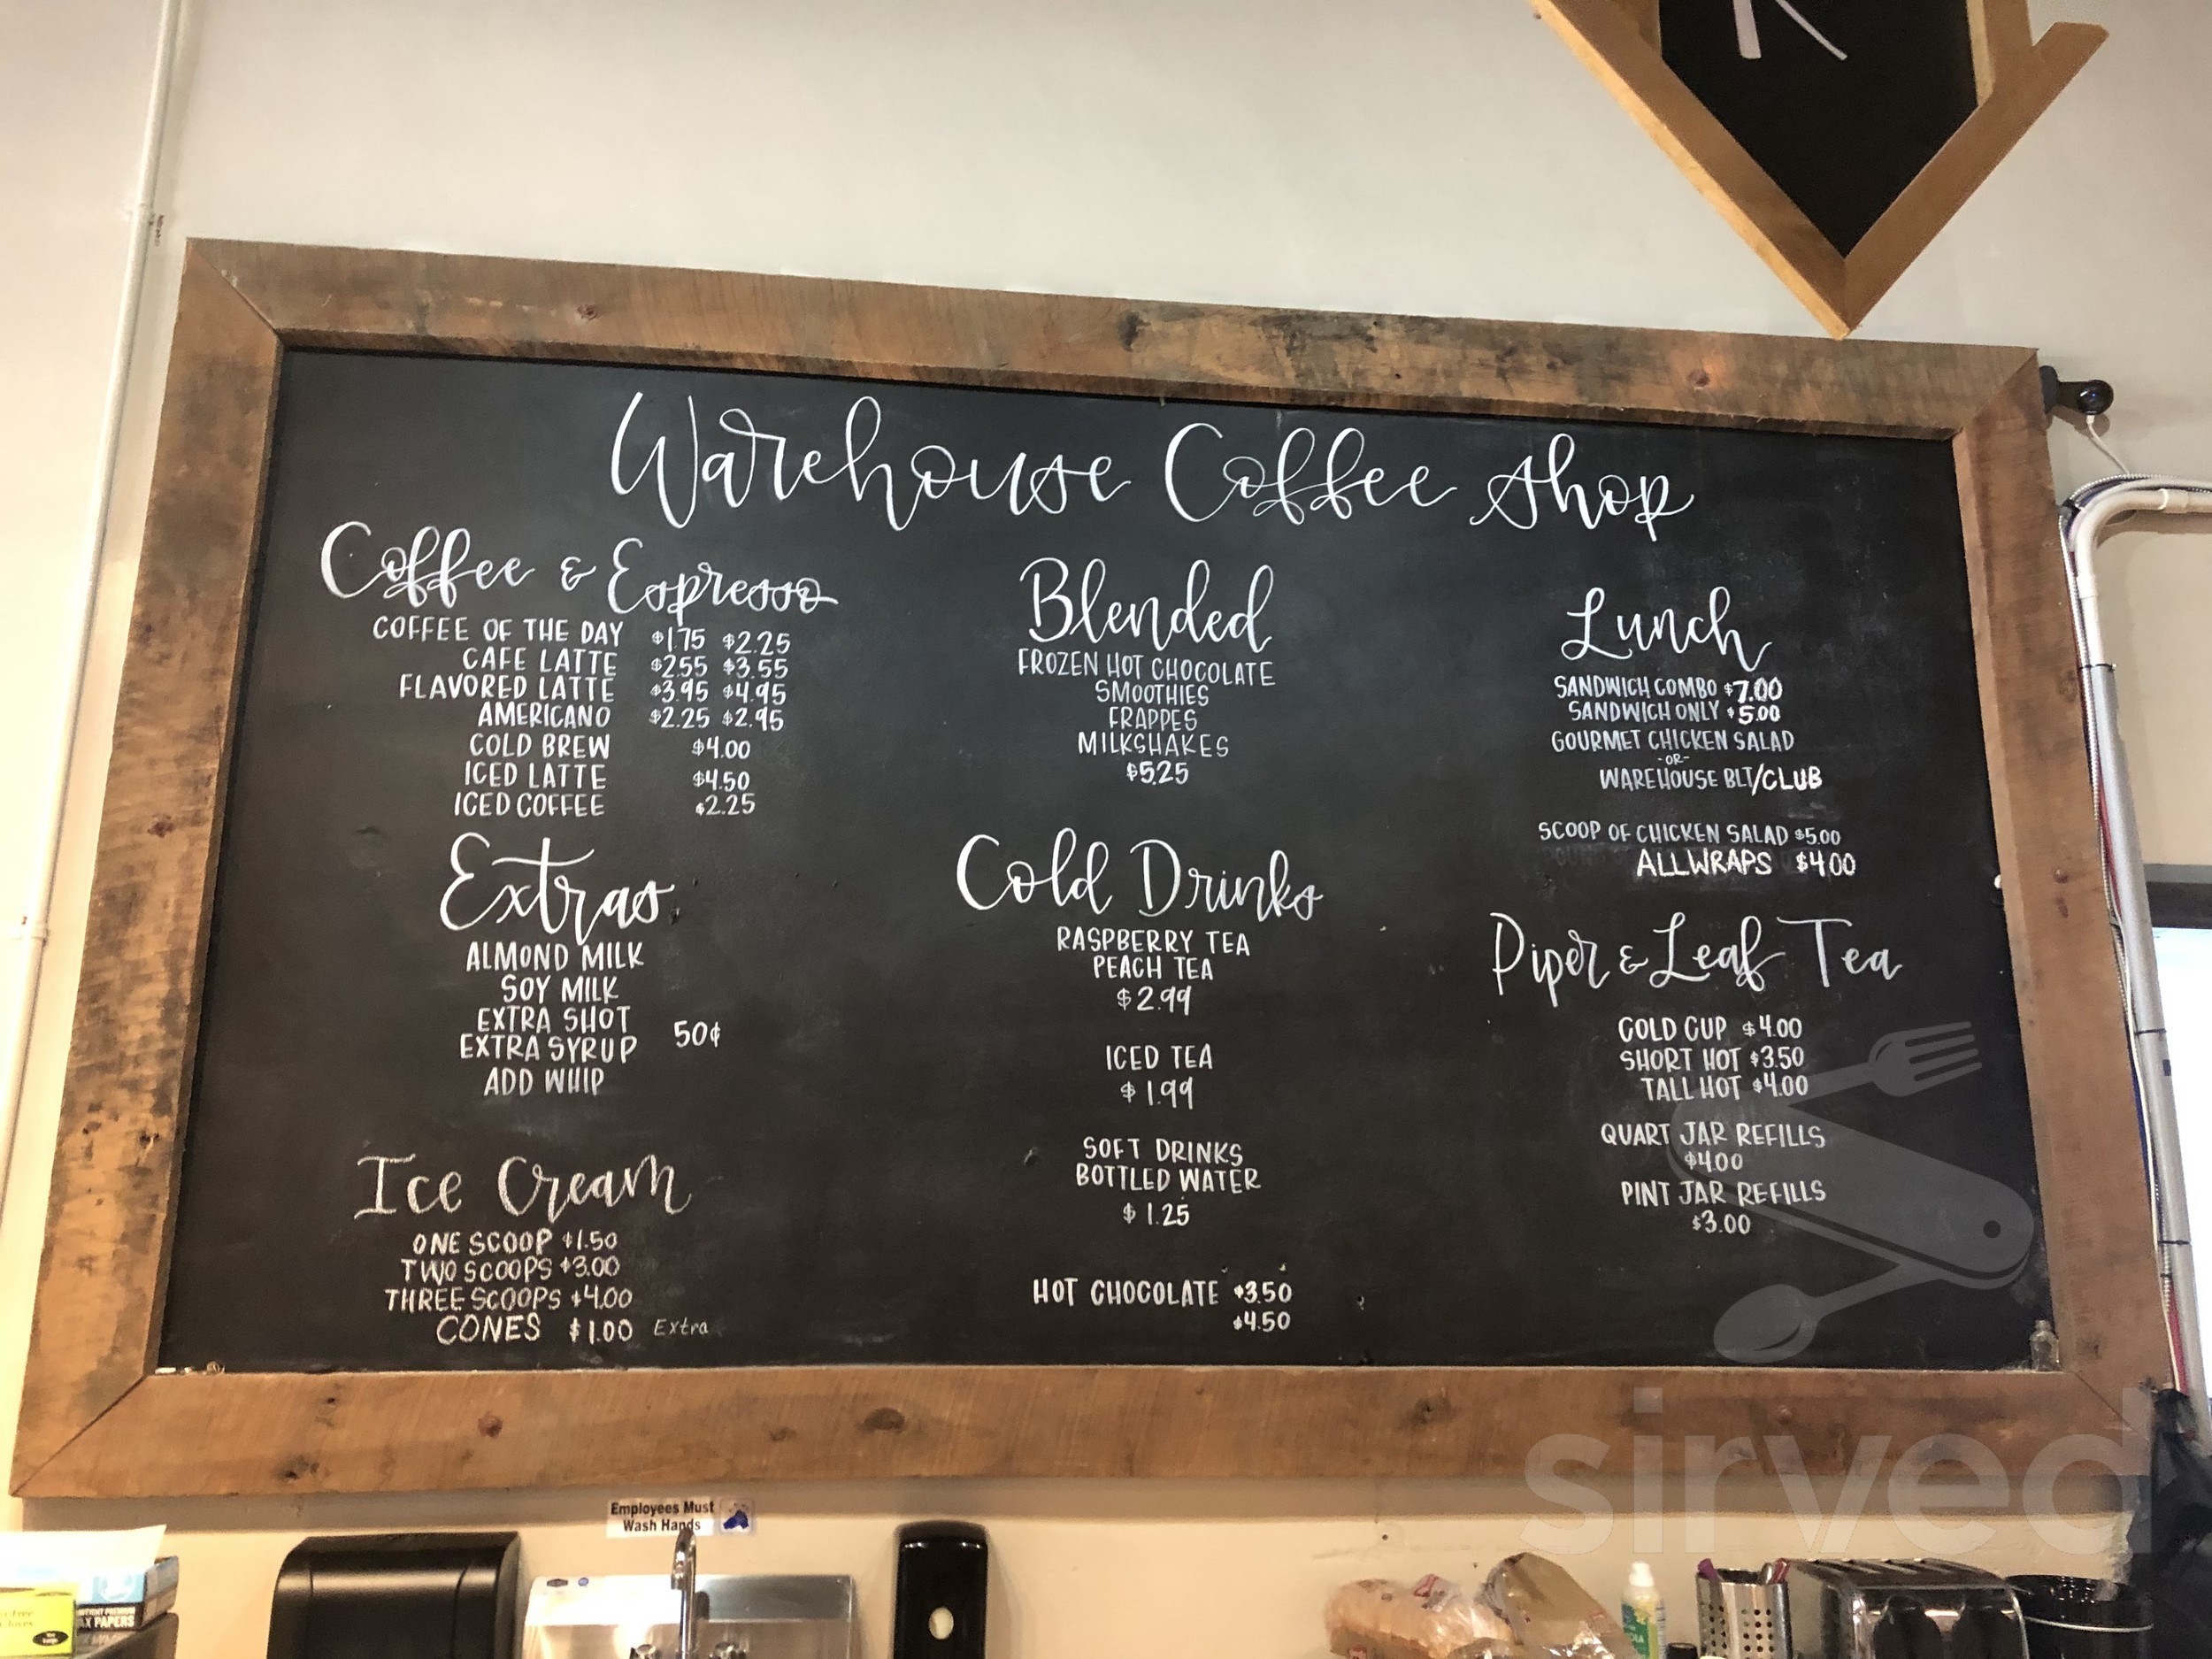 Warehouse Coffee Shop
Coffee & Espresso
COFFEE OF THE DAY $1.75 $2.25
CAFE LATTE $2.55 $3.55
FLAVORED LATTE $3.95 $4.95
AMERICANO $2.25 $2.95
COLD BREW $4.00
ICED LATTE $4.50
ICED COFFEE $2.25
Extras
ALMOND MILK
SOY MILK
EXTRA SHOT
EXTRA SYRUP 50¢
ADD WHIP
Ice Cream
ONE SCOOP $1.50
TWO SCOOPS $3.00
THREE SCOOPS $4.00
CONES $1.00 Extra
Blended
FROZEN HOT CHOCOLATE
SMOOTHIES
FRAPPES
MILKSHAKES
$5.25
Cold Drinks
RASPBERRY TEA
PEACH TEA
$2.99
ICED TEA
$1.99
SOFT DRINKS
BOTTLED WATER
$1.25
HOT CHOCOLATE $3.50
$4.50
Lunch
SANDWICH COMBO $7.00
SANDWICH ONLY $5.00
GOURMET CHICKEN SALAD
-OR-
WAREHOUSE BLT/CLUB
SCOOP OF CHICKEN SALAD $5.00
ALL WRAPS $4.00
Piper & Leaf Tea
COLD CUP $4.00
SHORT HOT $3.50
TALL HOT $4.00
QUART JAR REFILLS
$4.00
PINT JAR REFILLS
$3.00
sirved
Employees Must
Wash Hands
PAPERS